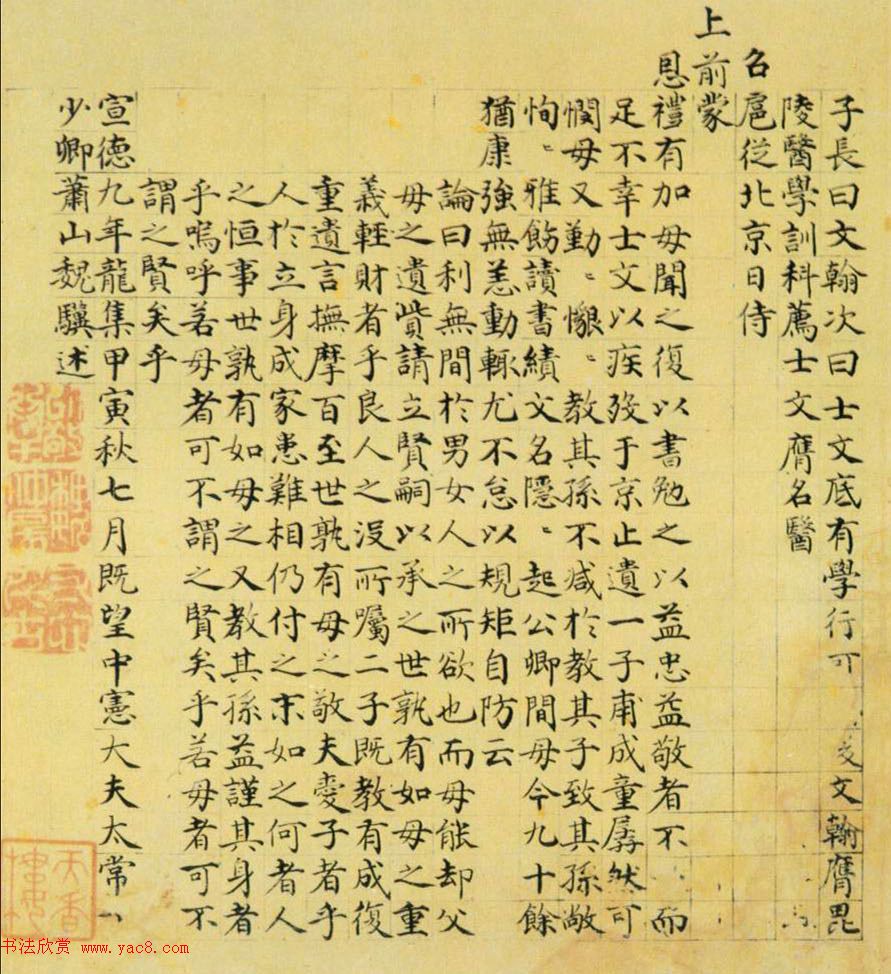 子長曰文翰次曰士文底有學行可 文翰膺毘
陵醫學訓科薦士文膺名醫
名扈從北京日侍
上前蒙
恩禮有加母聞之復以書勉之以益忠益敬者不 而
足不幸士文以疾歿于京止遺一子甫成童孱然可
憫母又勤〻懇〻教其孫不減於教其子致其孫敞
恂〻雅飭讀書績文名隱〻起公卿間母今九十餘
猶康強無恙動輒尤不怠以規矩自防云
論曰利無間於男女人之所欲也而母能却父
母之遺貲請立賢嗣以承之世孰有如母之重
義輕財者乎良人之沒所囑二子既教有成復
重遺言撫摩百至世孰有母之敬夫愛子者乎
人於立身成家患難相仍付之末如之何者人
之恒事世孰有如母之又教其孫益謹其身者
乎嗚呼若母者可不謂之賢矣乎若母者可不
謂之賢矣乎
宣德九年龍集甲寅秋七月既望中憲大夫太常
少卿蕭山魏驥述
天香樓
书法欣赏 www.yac8.com